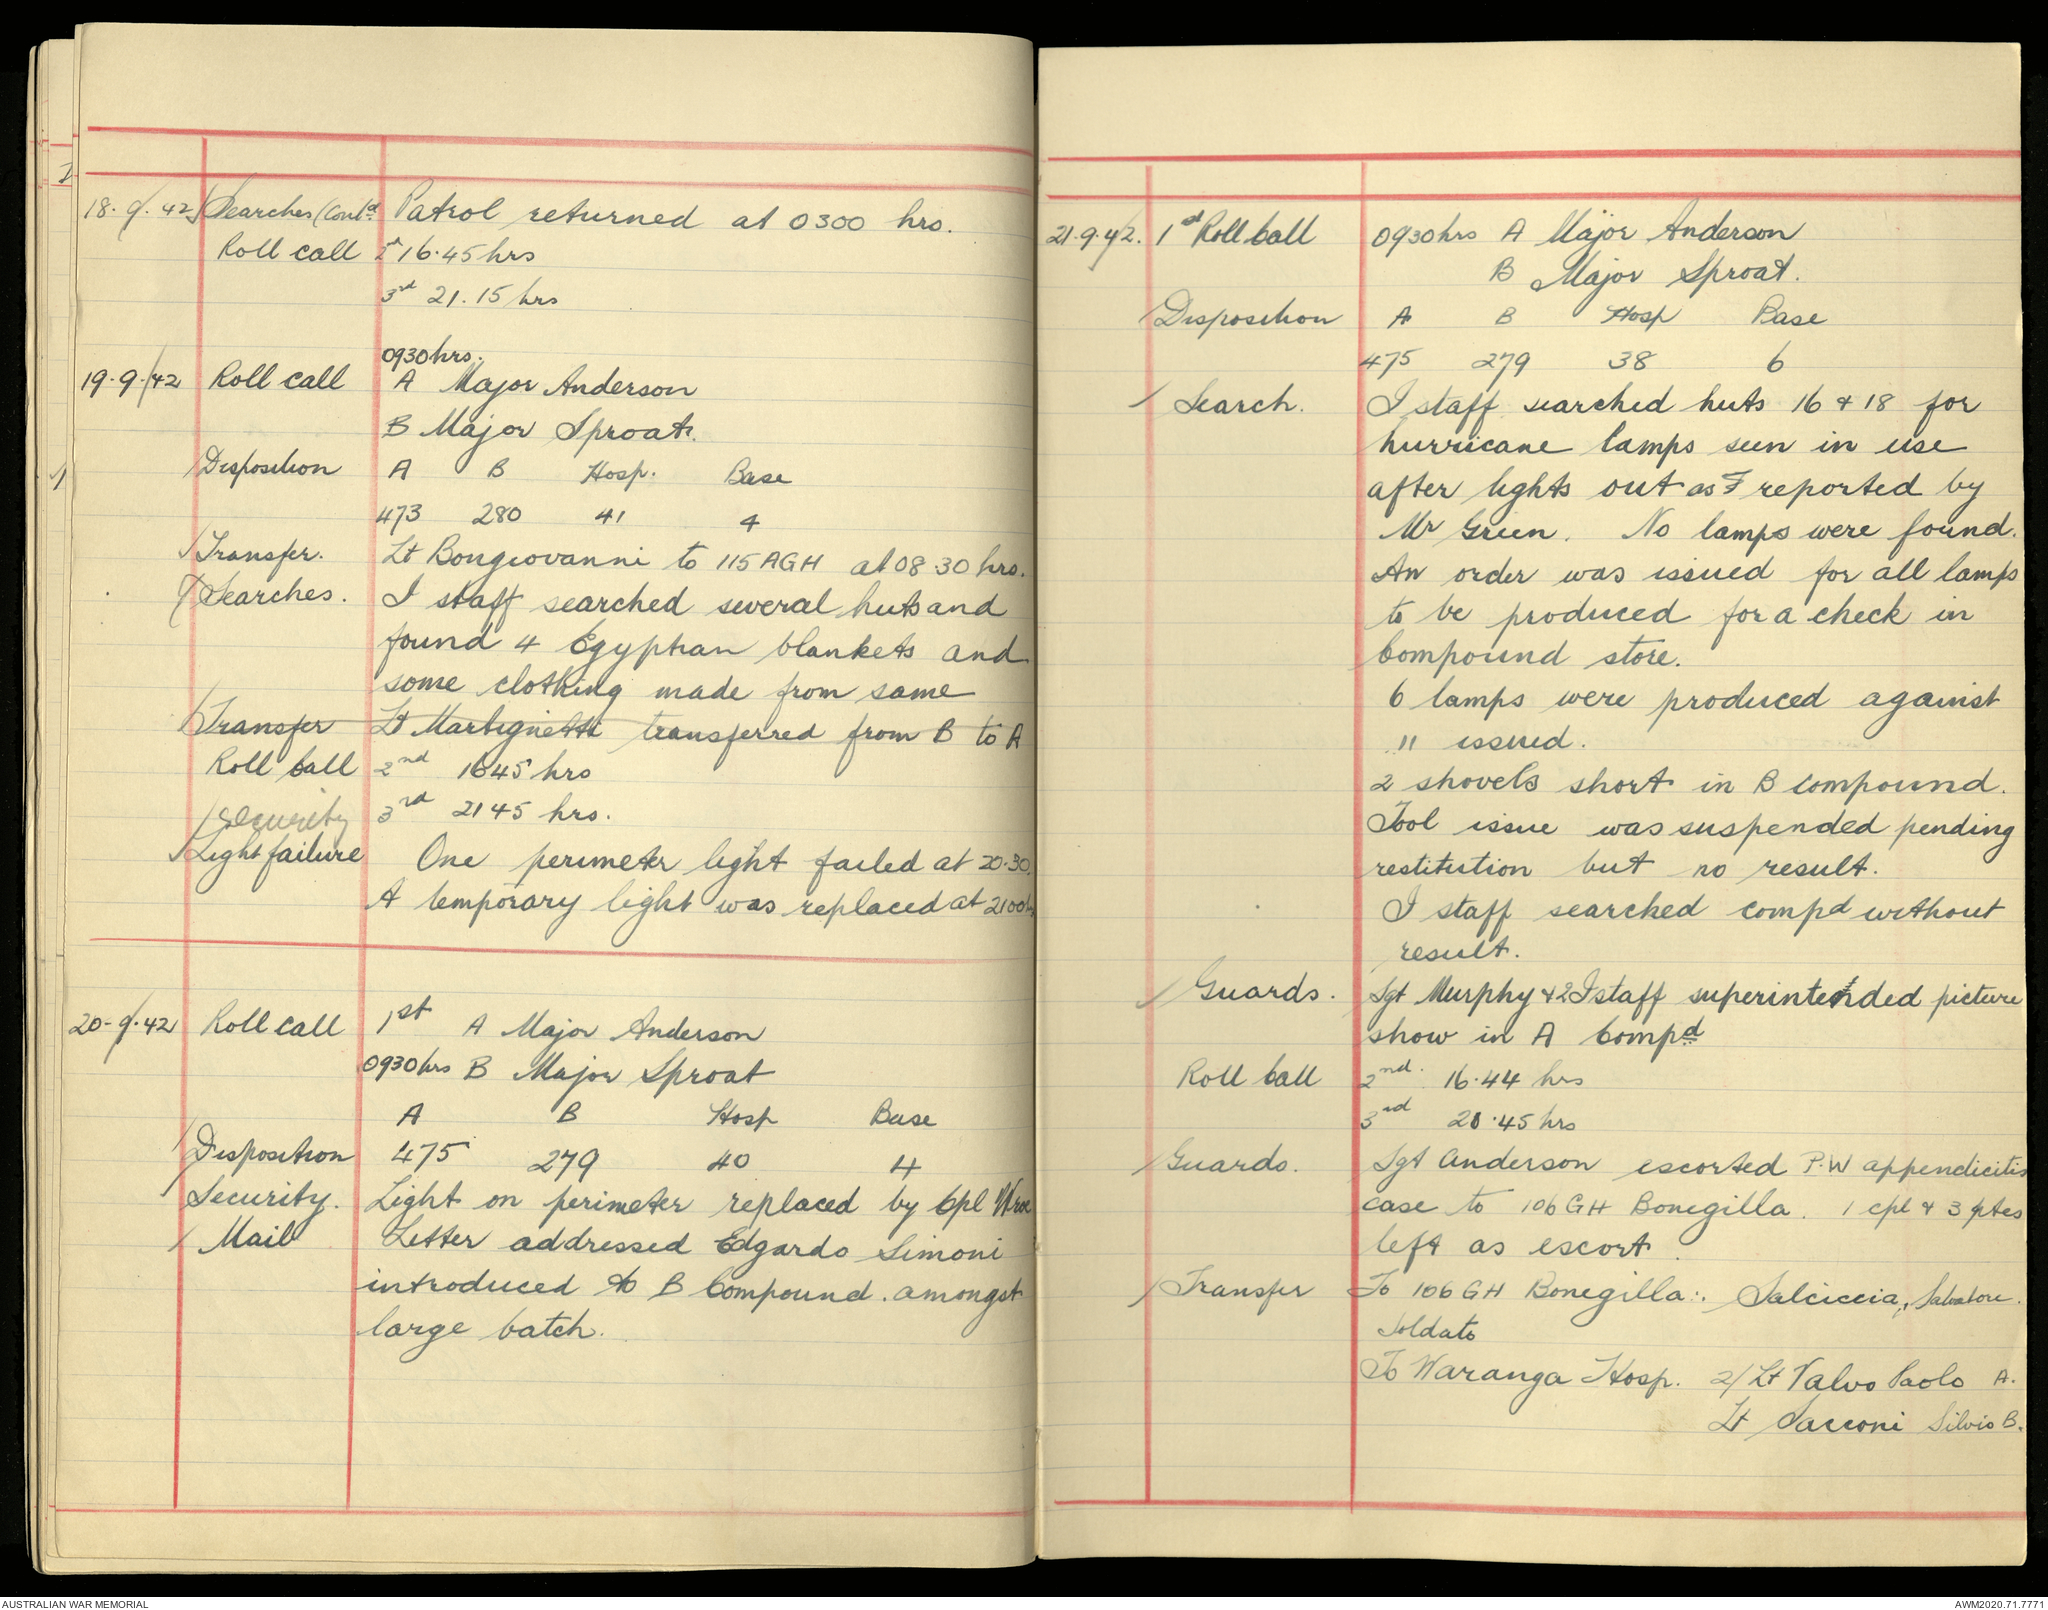 18.9.42 Searches (Contd. Patrol returned at 0300 hrs.
Roll call 16.45 hrs
3rd 21.15 hrs
0930 hrs.
19.9.42 Roll call A Major Anderson
B Major Sproat.
Disposition A B Hosp. Base
473 280 41 4
Transfer. Lt Bongiovanni to 115 AGH at 08.30 hrs.
Searches. I staff searched several huts and
found 4 Egyptian blankets and
some clothing made from same
Transfer Lt Martignetti transferred from B to A
Roll Call 2nd 1645 hrs
Security 3rd 2145 hrs.
Light failure One perimeter light failed at 20.30.
A temporary light was replaced at 2100
20-9-42 Roll call 1st A Major Anderson
0930 hrs B Major Sproat
A B Hosp Base
Disposition 475 279 40 4
Security. Light on perimeter replaced by Cpl
Mail Letter addressed Edgardo Simoni
introduced to B Compound. amongst
large batch.
21.9.42. 1st Roll Call 0930 hrs A Major Anderson
B Major Sproat.
Disposition A B Hosp Base
475 279 38 6
Search. I staff searched huts 16 & 18 for
hurricane lamps seen in use
after lights out as reported by
Mr Green. No lamps were found.
An order was issued for all lamps
to be produced for a check in
Compound store.
6 lamps were produced against
11 issued.
2 shovels short in B Compound.
Tool issue was suspended pending
restitution but no result.
I staff searched compd without
result.
Guards. Sgt Murphy & 2 I staff superintended picture
show in A Compd
Roll Call 2nd. 16.44 hrs
3rd 21.45 hrs
Guards. Sgt Anderson escorted P.W appendicitis
case to 106 GH Bonegilla. 1 cpl & 3 ptes
left as escort.
Transfer To 106 GH Bonegilla: Salciccia, Salvatore.
Soldato
To Waranga Hosp. 2/Lt Valvo Paolo A.
Lt Sacconi Silvio B.
AUSTRALIAN WAR MEMORIAL
AWM2020.71.7771